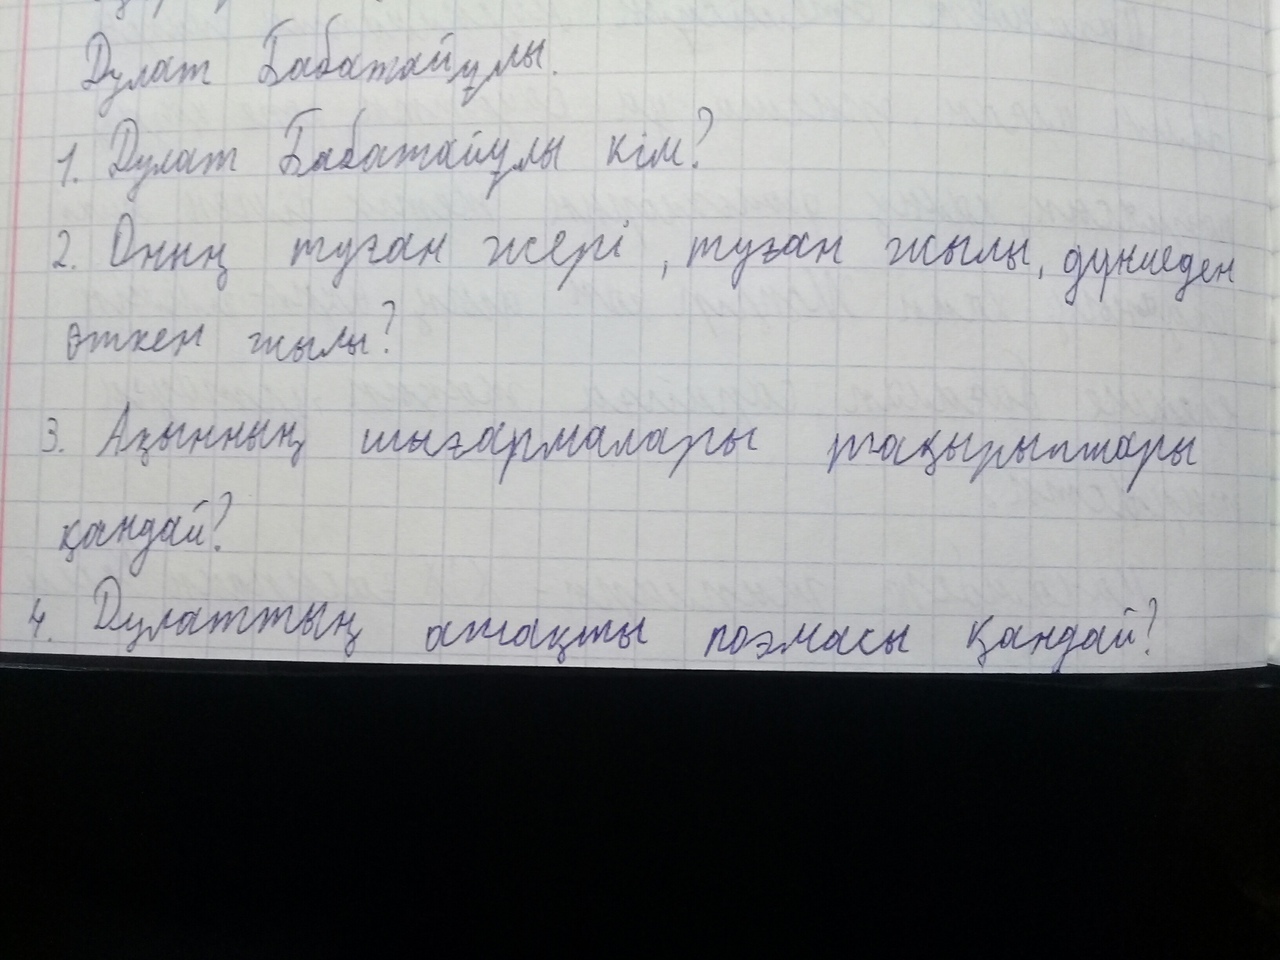 Дулат Бабатайұлы.
1. Дулат Бабатайұлы кім?
2. Оның туған жері, туған жылы, дүниеден
өткен жылы?
3. Ақынның шығармалары тақырыптары
қандай?
4. Дулаттың атақты поэмасы қандай?